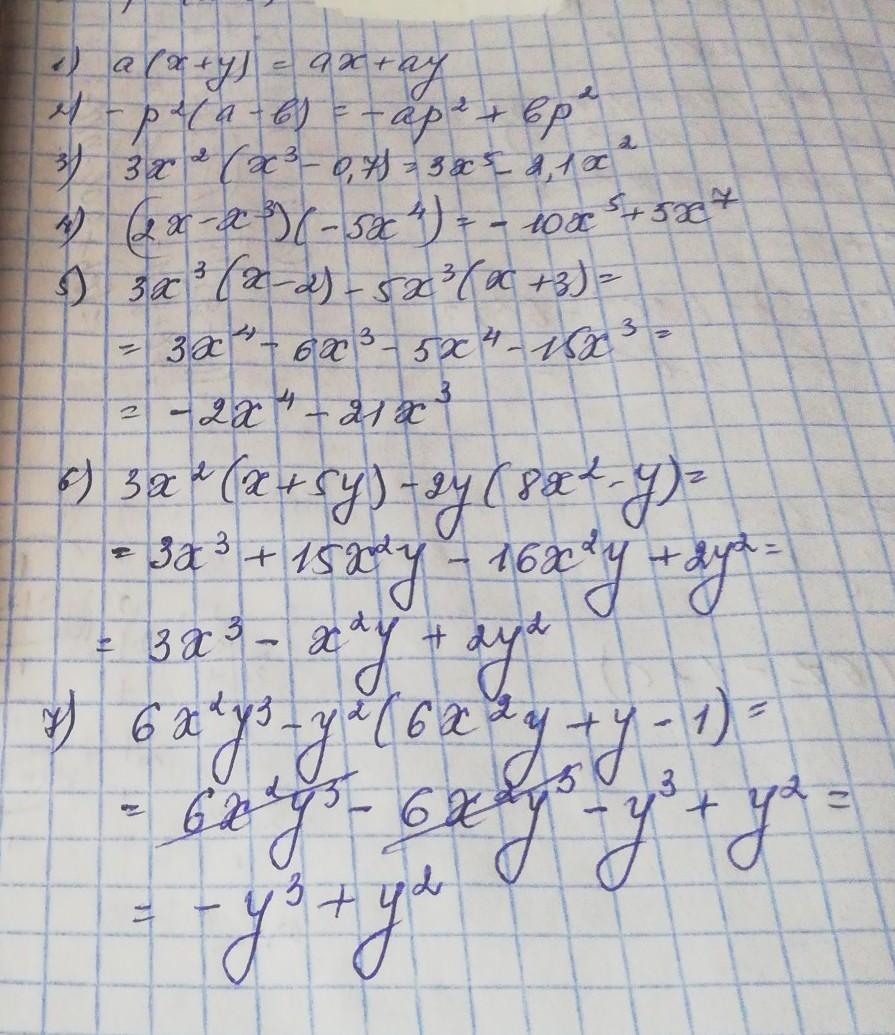 1) a(x+y) = ax+ay
2) -p²(a-b) = -ap²+bp²
3) 3x²(x³-0,7)=3x⁵-2,1x²
4) (2x-x³)(-5x⁴)=-10x⁵+5x⁷
5) 3x³(x-2)-5x³(x+3)=
= 3x⁴-6x³-5x⁴-15x³=
= -2x⁴-21x³
6) 3x²(x+5y)-2y(8x²-y)=
= 3x³+15x²y-16x²y+2y²=
= 3x³-x²y+2y²
7) 6x²y³-y²(6x²y+y-1)=
= 6x²y³-6x²y³-y³+y²=
= -y³+y²